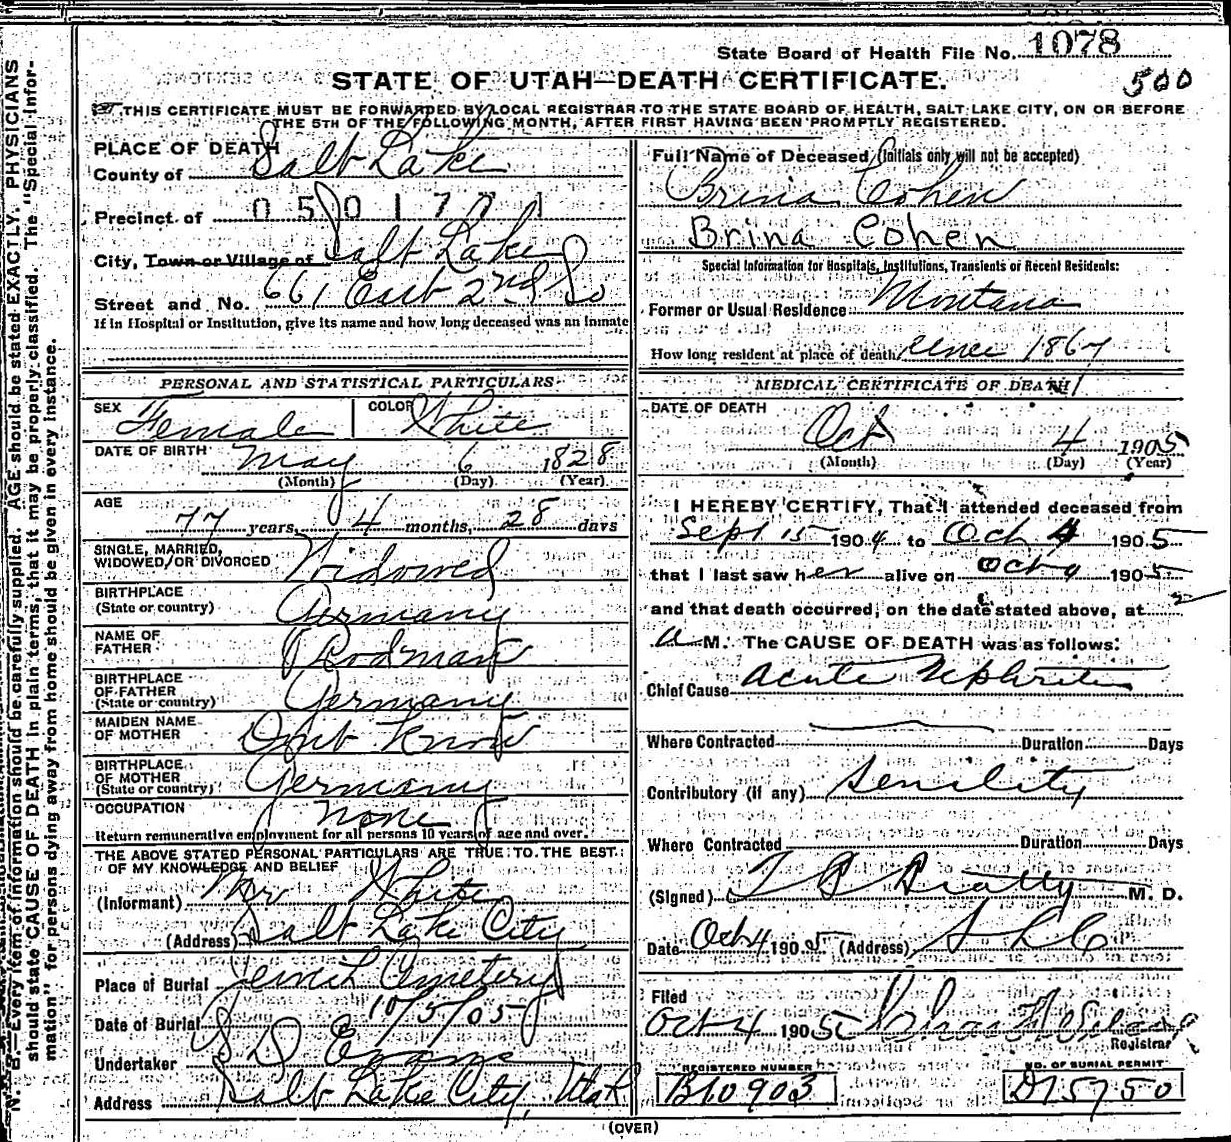 State Board of Health File No. 1078
STATE OF UTAH—DEATH CERTIFICATE.
500
THIS CERTIFICATE MUST BE FORWARDED BY LOCAL REGISTRAR TO THE STATE BOARD OF HEALTH, SALT LAKE CITY, ON OR BEFORE
THE 5TH OF THE FOLLOWING MONTH, AFTER FIRST HAVING BEEN PROMPTLY REGISTERED.
N. B.—Every item of information should be carefully supplied. AGE should be stated EXACTLY. PHYSICIANS
should state CAUSE OF DEATH in plain terms, that it may be properly classified. The "Special Infor-
mation" for persons dying away from home should be given in every instance.
PLACE OF DEATH
County of Salt Lake
Precinct of 0501771
City, Town or Village of Salt Lake
Street and No. 661 East 2nd So
If in Hospital or Institution, give its name and how long deceased was an inmate
PERSONAL AND STATISTICAL PARTICULARS
SEX Female COLOR White
DATE OF BIRTH May 6 1828
(Month) (Day) (Year)
AGE 77 years, 4 months, 28 days
SINGLE, MARRIED,
WIDOWED, OR DIVORCED Widowed
BIRTHPLACE
(State or country) Germany
NAME OF
FATHER Rodman
BIRTHPLACE
OF FATHER
(State or country) Germany
MAIDEN NAME
OF MOTHER Dont Know
BIRTHPLACE
OF MOTHER
(State or country) Germany
OCCUPATION None
Return remunerative employment for all persons 10 years of age and over.
THE ABOVE STATED PERSONAL PARTICULARS ARE TRUE TO THE BEST
OF MY KNOWLEDGE AND BELIEF
(Informant) Mr White
(Address) Salt Lake City
Place of Burial Jewish Cemetery
Date of Burial 10/5/05
Undertaker S D Evans
Address Salt Lake City, Utah
Full Name of Deceased (Initials only will not be accepted)
Brina Cohen
Brina Cohen
Special Information for Hospitals, Institutions, Transients or Recent Residents:
Former or Usual Residence Montana
How long resident at place of death since 1867
MEDICAL CERTIFICATE OF DEATH
DATE OF DEATH
Oct 4 1905
(Month) (Day) (Year)
I HEREBY CERTIFY, That I attended deceased from
Sept 15 1904 to Oct 4 1905
that I last saw her alive on Oct 4 1905
and that death occurred, on the date stated above, at 2
a M. The CAUSE OF DEATH was as follows:
Chief Cause Acute Nephritis
Where Contracted Duration Days
Contributory (if any) Senility
Where Contracted Duration Days
(Signed) T B Beatty M. D.
Date Oct 4 1905 (Address) S L C
Filed
Oct 4 1905
Registrar
REGISTERED NUMBER
B10903
NO. OF BURIAL PERMIT
D15750
(OVER)